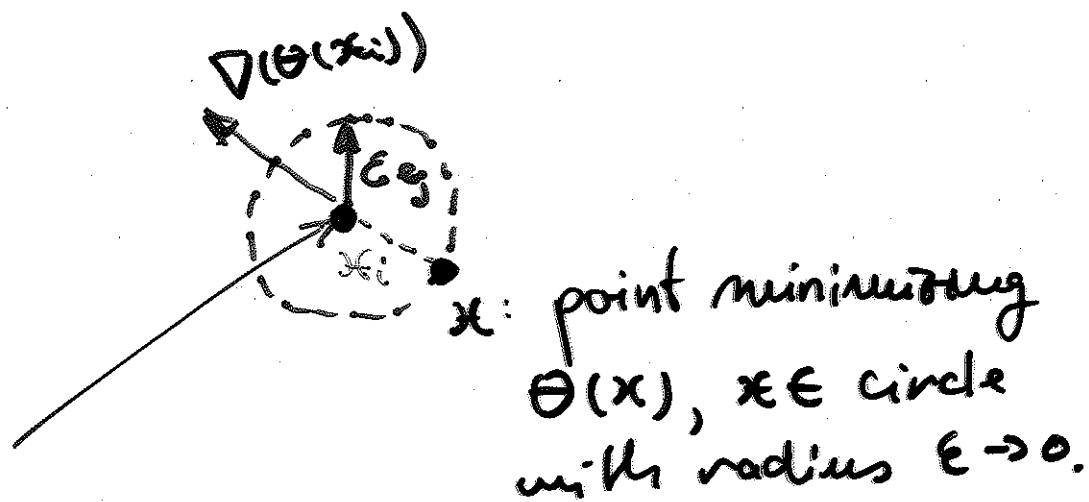 ∇(θ(xᵢ))
εeⱼ
xᵢ
x: point minimizing
θ(x), x ∈ circle
with radius ε → 0.